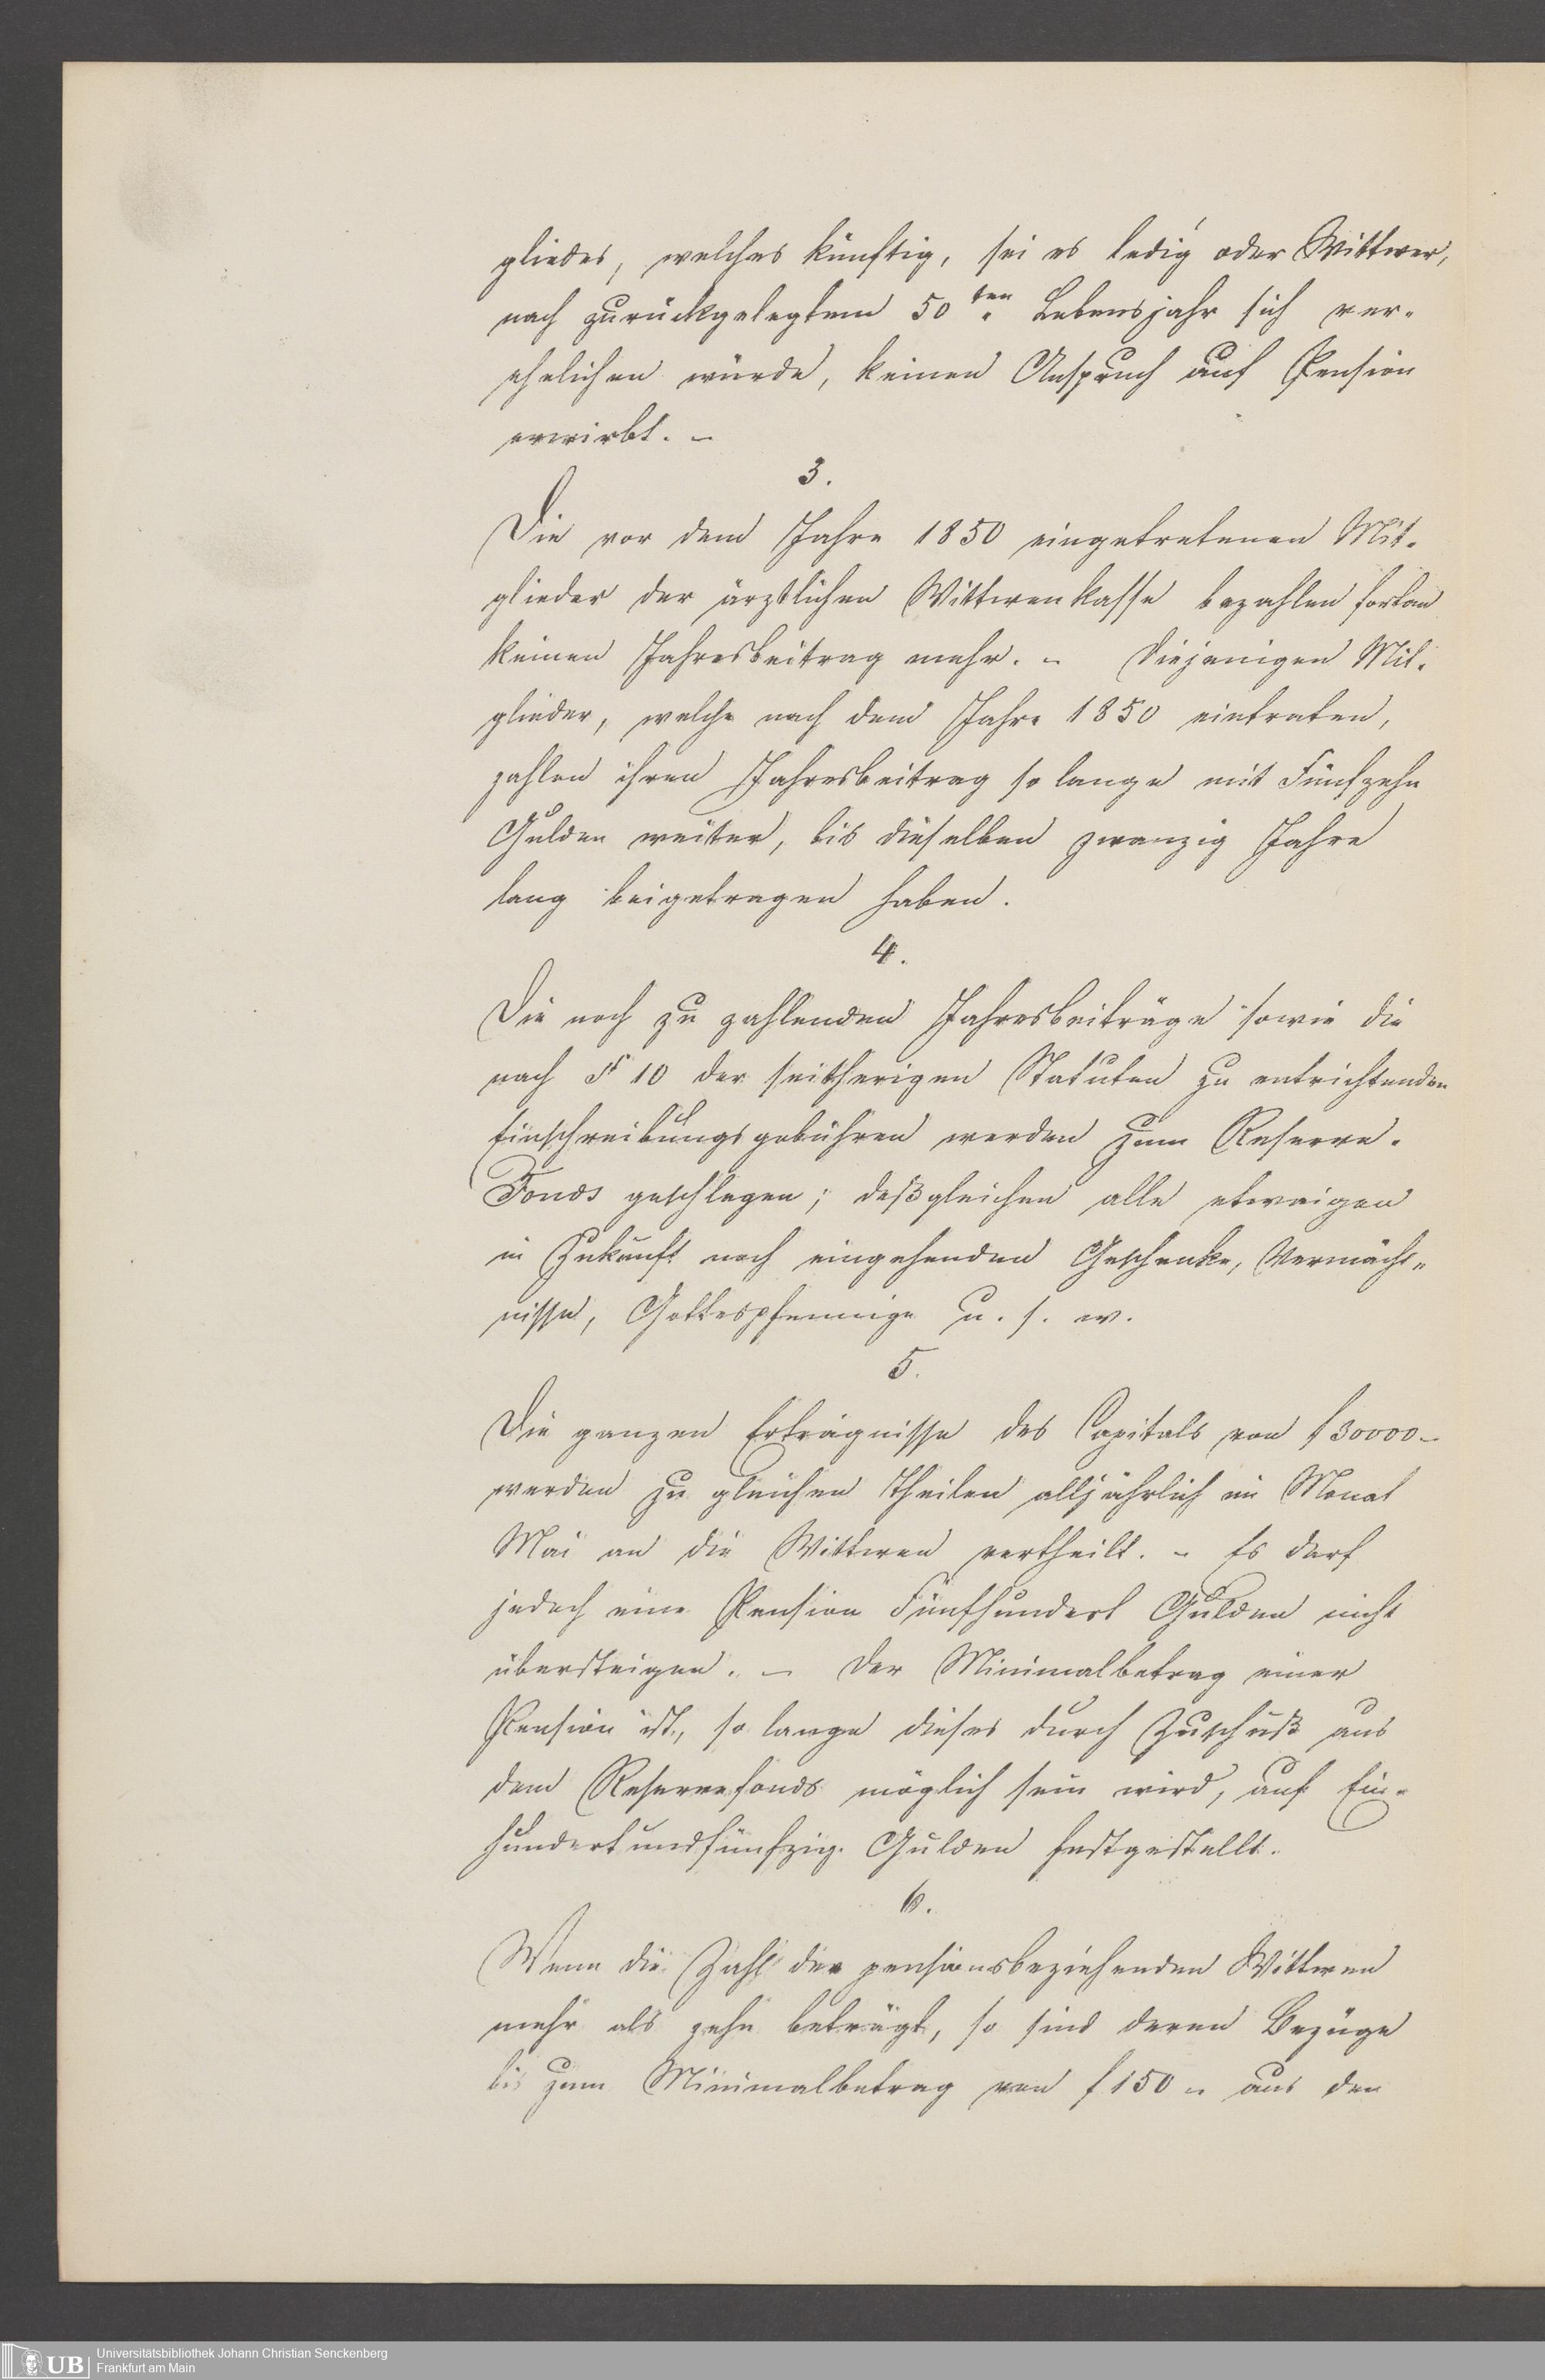 gliedes, welches künftig, sei es ledig oder Wittwer,
nach zurückgelegtem 50ten Lebensjahr sich ver-
ehelichen würde, keinen Anspruch auf Pension
erwirbt. –
3.
Die vor dem Jahre 1850 eingetretenen Mit-
glieder der ärztlichen Wittwenkasse bezahlen fortan
keinen Jahresbeitrag mehr. – Diejenigen Mit-
glieder, welche nach dem Jahre 1850 eintraten,
zahlen ihren Jahresbeitrag so lange mit Fünfzehn
Gulden weiter, bis dieselben zwanzig Jahre
lang beigetragen haben.
4.
Die noch zu zahlenden Jahresbeiträge sowie die
nach § 10 der seitherigen Statuten zu entrichtenden
Einschreibungsgebühren werden zum Reserve-
Fonds geschlagen; deßgleichen alle etwaigen
in Zukunft noch eingehenden Geschenke, Vermächt-
nisse, Gottespfennige u. s. w.
5.
Die ganzen Erträgnisse des Capitals von f 30000 –
werden zu gleichen Theilen alljährlich im Monat
Mai an die Wittwen vertheilt. – Es darf
jedoch eine Pension Fünfhundert Gulden nicht
übersteigen. – Der Minimalbetrag einer
Pension ist, so lange dieses durch Zuschuß aus
dem Reservefonds möglich sein wird, auf Ein-
hundertundfünfzig Gulden festgestellt.
6.
Wenn die Zahl der pensionsbeziehenden Wittwen
mehr als zehn beträgt, so sind deren Bezüge
bis zum Minimalbetrag von f 150 – aus den
UB
Universitätsbibliothek Johann Christian Senckenberg
Frankfurt am Main